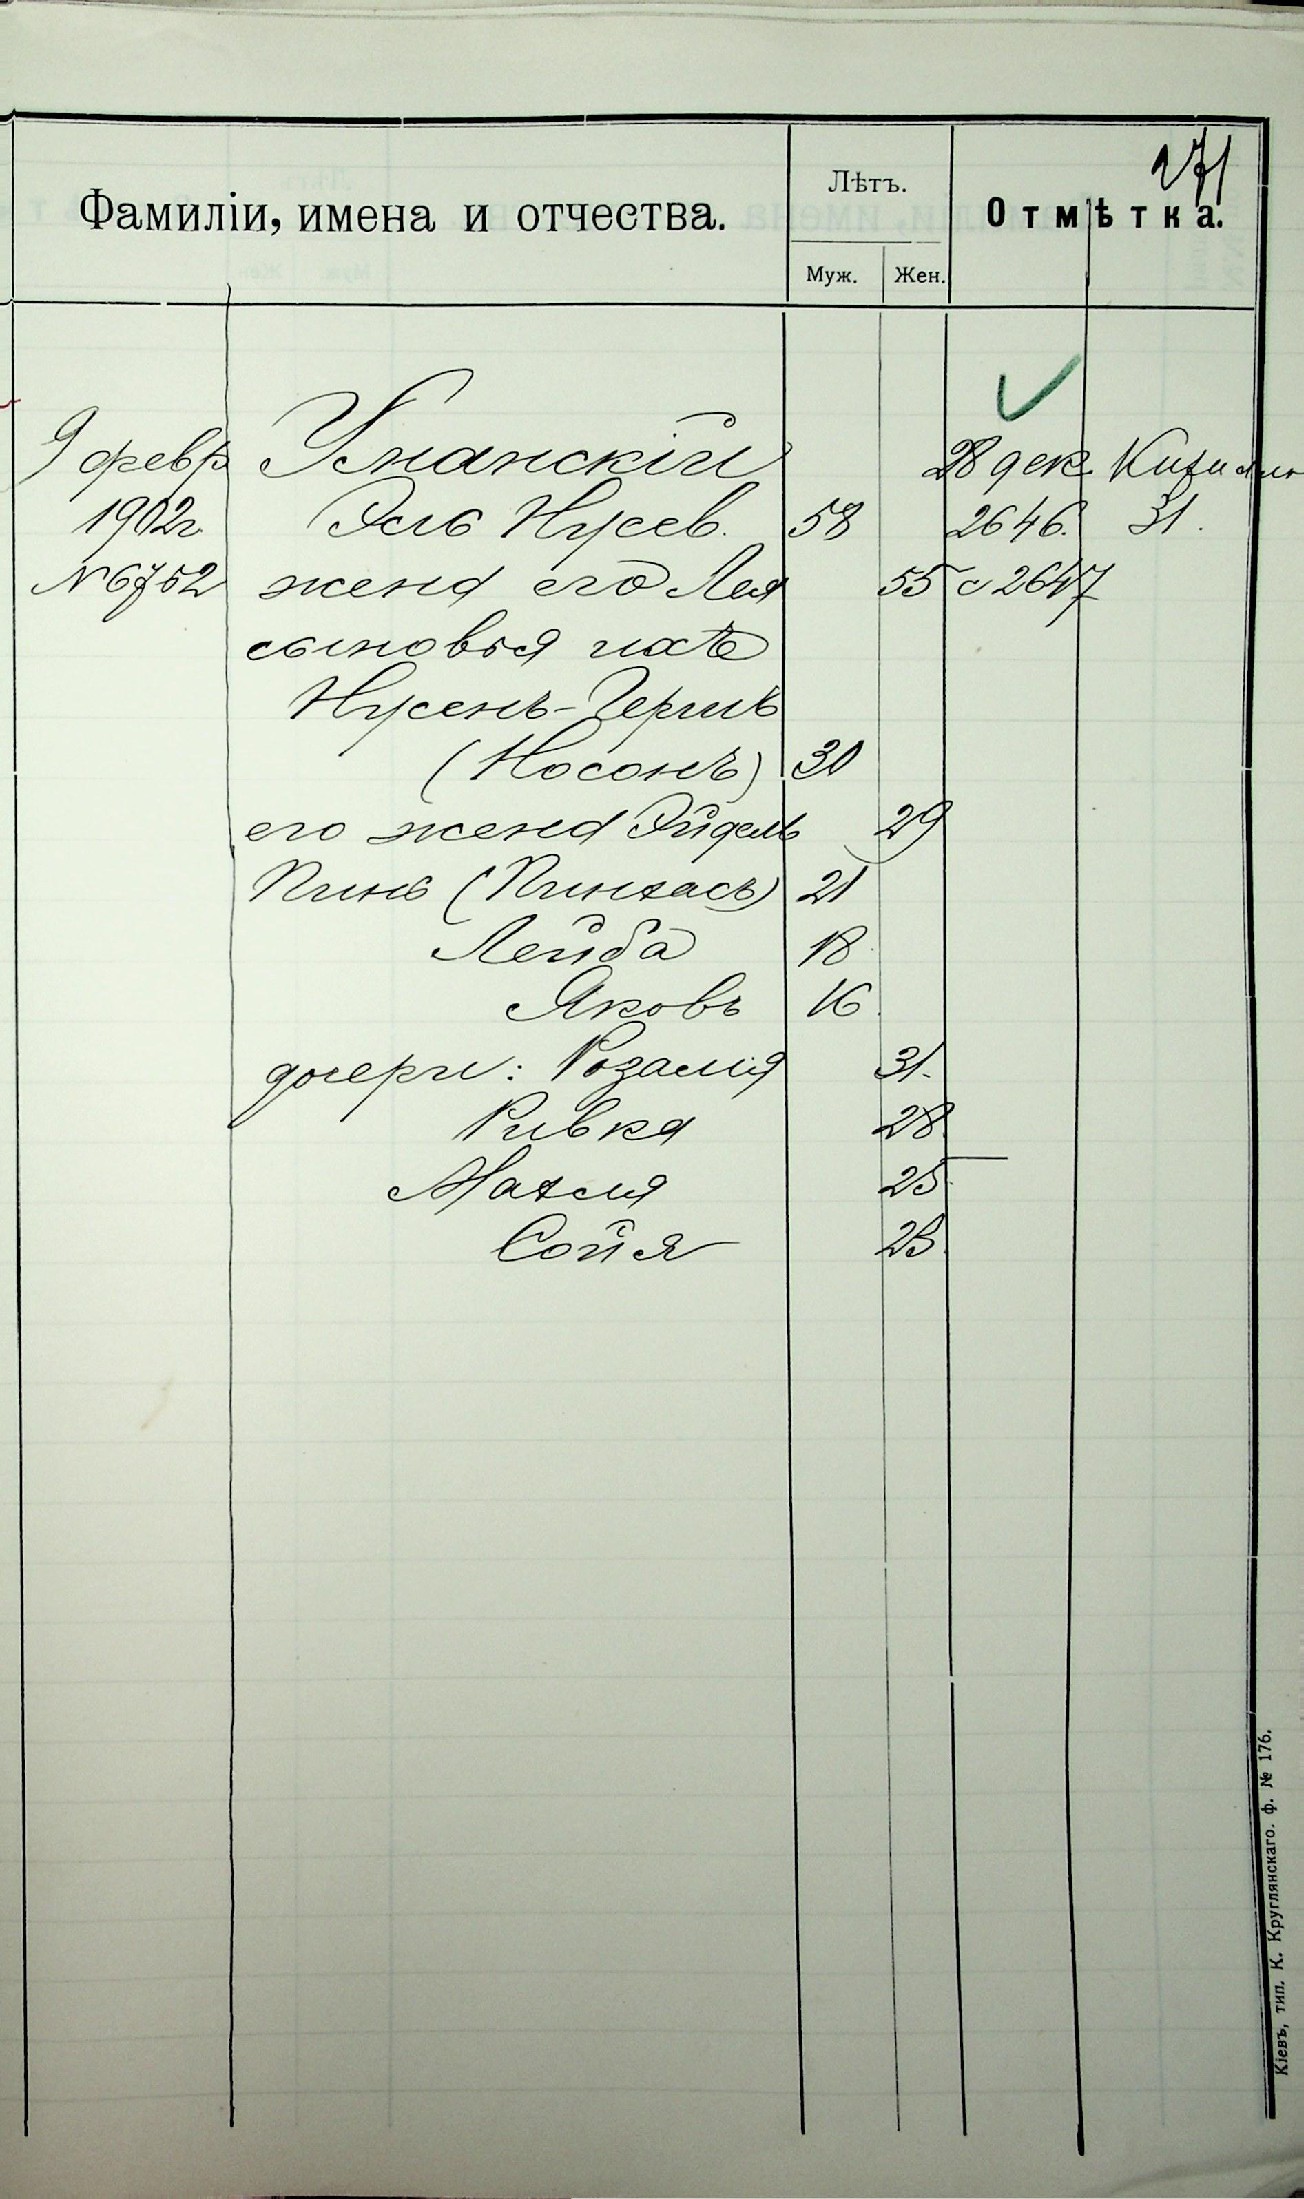 271
Фамиліи, имена и отчества.
Лѣтъ.
Муж.
Жен.
Отмѣтка.
9 февр Уманскій 28 дек.
1902г Эль Нусев. 58 2646. 31.
№ 6752 жена его Лея 55 с 2647
сыновья ихъ
Нусенъ-Гершъ
(Носонъ) 30
его жена Эйдель 29
Пинь (Пинхасъ) 21
Лейба 18
Яковъ 16
дочери: Розалія 31.
Ривка 28
Махля 25
Сойя 23
Кіевъ, тип. К. Круглянскаго. ф. № 176.